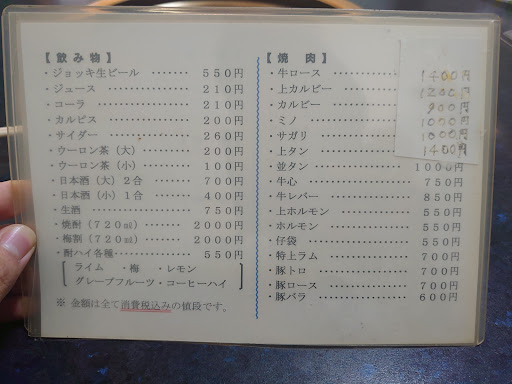 【飲み物】
・ジョッキ生ビール ‥‥‥ 550円
・ジュース ‥‥‥‥‥ 210円
・コーラ ‥‥‥‥‥ 210円
・カルピス ‥‥‥‥‥ 200円
・サイダー ‥‥‥‥‥ 260円
・ウーロン茶(大) ‥‥‥ 200円
・ウーロン茶(小) ‥‥‥ 100円
・日本酒(大)2合 ‥‥‥ 700円
・日本酒(小)1合 ‥‥‥ 400円
・生酒 ‥‥‥‥‥‥ 750円
・焼酎(720㎖) ‥‥‥ 2000円
・梅割(720㎖) ‥‥‥ 2000円
・酎ハイ各種‥‥‥‥‥ 550円
ライム ・梅 ・レモン
グレープフルーツ・コーヒーハイ
※ 金額は全て消費税込みの値段です。
【焼 肉】
・牛ロース ‥‥‥‥‥ 1400円
・上カルビー ‥‥‥‥‥ 1200円
・カルビー ‥‥‥‥‥ 900円
・ミノ ‥‥‥‥‥ 1000円
・サガリ ‥‥‥‥‥ 1000円
・上タン ‥‥‥‥‥ 1400円
・並タン ‥‥‥‥‥ 1000円
・牛心 ‥‥‥‥‥ 750円
・牛レバー ‥‥‥‥‥ 850円
・上ホルモン ‥‥‥‥‥ 550円
・ホルモン ‥‥‥‥‥ 550円
・仔袋 ‥‥‥‥‥ 550円
・特上ラム ‥‥‥‥‥ 700円
・豚トロ ‥‥‥‥‥ 700円
・豚ロース ‥‥‥‥‥ 700円
・豚バラ ‥‥‥‥‥ 600円